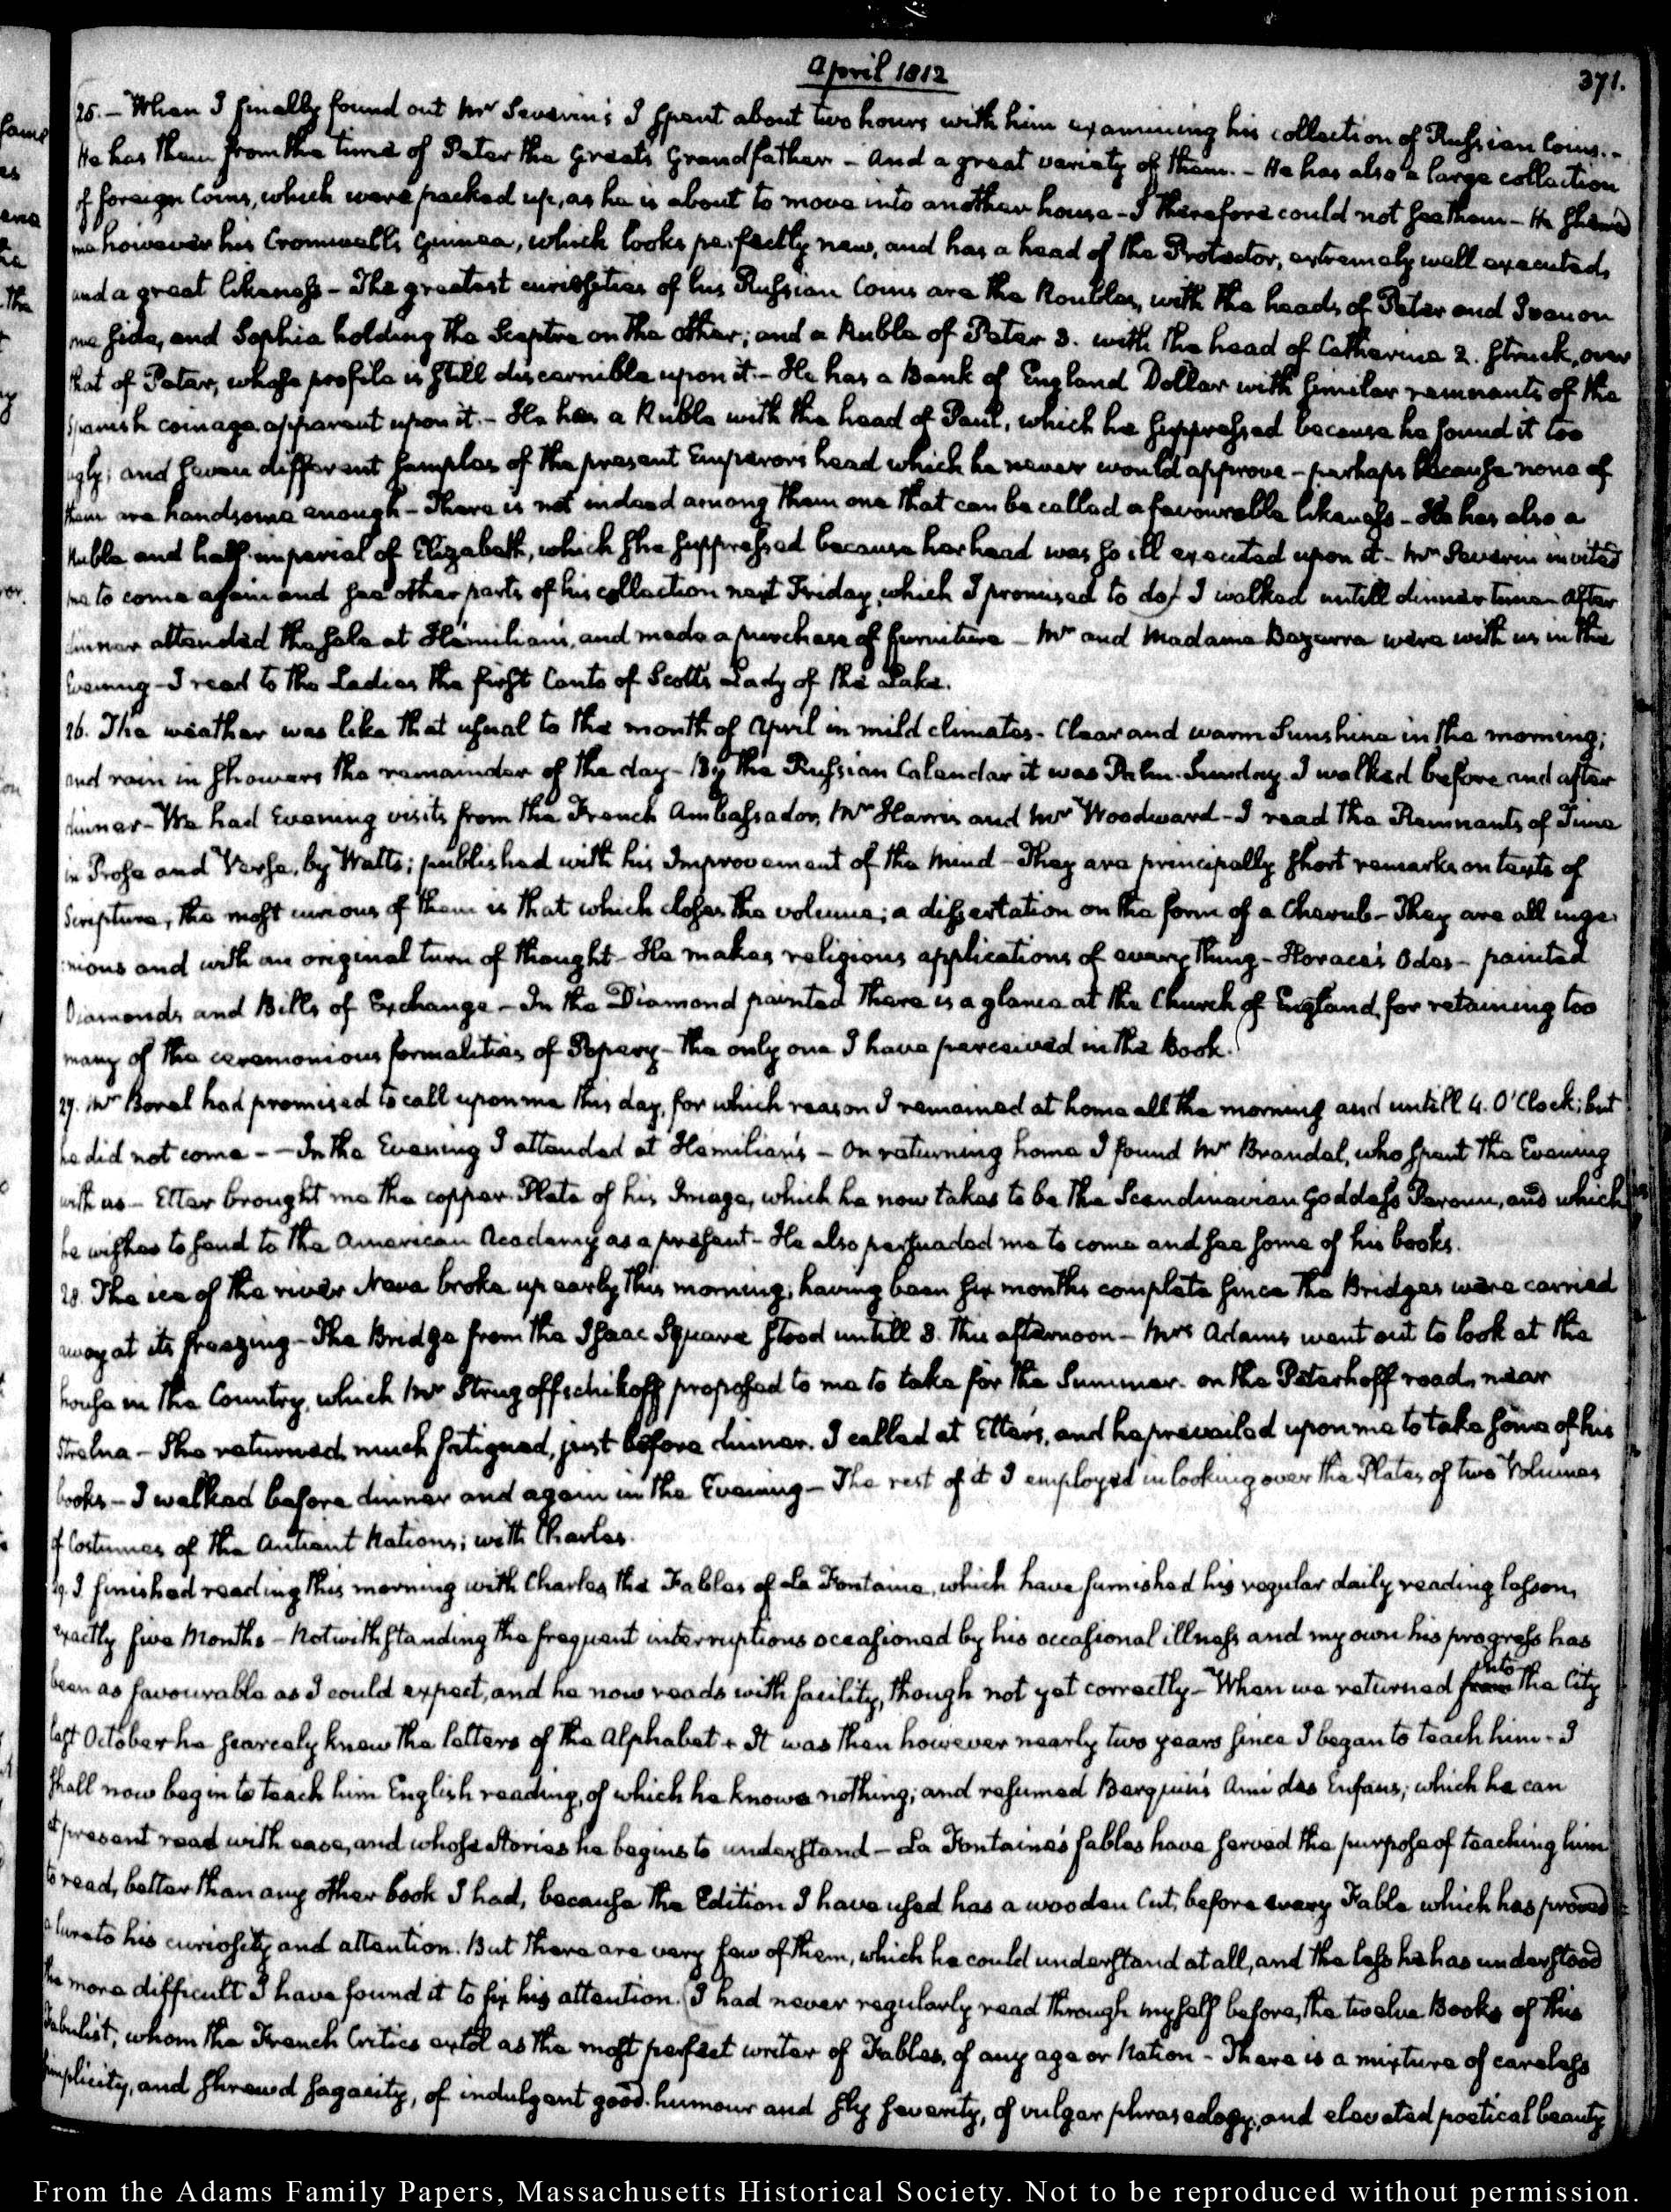 April 1812
371.
25. – When I finally found out Mr Severin's I spent about two hours with him examining his collection of Russian Coins. –
He has them from the time of Peter the Great's Grandfather – And a great variety of them. – He has also a large collection
of foreign Coins, which were packed up, as he is about to move into another house – I therefore could not see them – He shewed
me however his Cromwell's Guinea, which looks perfectly new, and has a head of the Protector, extremely well executed,
and a great likeness – The greatest curiosities of his Russian Coins are the Roubles, with the heads of Peter and Ivan on
one side, and Sophia holding the Sceptre on the other; and a Ruble of Peter 3. with the head of Catherine 2. struck, over
that of Peter, whose profile is still discernible upon it. – He has a Bank of England Dollar with similar remnants of the
Spanish coinage apparent upon it. – He has a Ruble with the head of Paul, which he suppressed because he found it too
ugly; and seven different samples of the present Emperor's head which he never would approve – perhaps because none of
them are handsome enough – There is not indeed among them one that can be called a favourable likeness – He has also a
Ruble and half-imperial of Elizabeth, which she suppressed because her head was so ill executed upon it – Mr Severin invited
me to come again and see other parts of his collection next Friday, which I promised to do. I walked untill dinner time – After
dinner attended the sale at Hämilian's, and made a purchase of furniture – Mr and Madame Bezerra were with us in the
Evening – I read to the Ladies the first Canto of Scott's Lady of the Lake.
26. The weather was like that usual to the month of April in mild climates – Clear and warm Sunshine in the morning;
and rain in showers the remainder of the day – By the Russian Calendar it was Palm-Sunday. I walked before and after
dinner – We had Evening visits from the French Ambassador, Mr Harris and Mr Woodward – I read the Remnants of Time
in Prose and Verse, by Watts; published with his Improvement of the Mind – They are principally short remarks on texts of
Scripture, the most curious of them is that which closes the volume; a dissertation on the form of a Cherub – They are all inge-
nious and with an original turn of thought – He makes religious applications of every thing – Horace's Odes – painted
Diamonds and Bills of Exchange – In the Diamond painted there is a glance at the Church of England, for retaining too
many of the ceremonious formalities of Popery – the only one I have perceived in the Book.
27. Mr Borel had promised to call upon me this day, for which reason I remained at home all the morning and untill 4. O'Clock; but
he did not come – – In the Evening I attended at Hämilian's – On returning home I found Mr Brandel, who spent the Evening
with us – Etter brought me the copper-Plate of his Image, which he now takes to be the Scandinavian Goddess Peroun, and which
he wishes to send to the American Academy as a present – He also persuaded me to come and see some of his books.
28. The ice of the river Neva broke up early this morning; having been six months complete since the Bridges were carried
away at its freezing – The Bridge from the Isaac Square stood untill 3. this afternoon – Mrs Adams went out to look at the
house in the Country, which Mr Strugoffschikoff proposed to me to take for the Summer. on the Peterhoff road, near
Strelna – She returned, much fatigued, just before dinner. I called at Etter's, and he prevailed upon me to take some of his
books – I walked before dinner and again in the Evening – The rest of it I employed in looking over the Plates of two Volumes
of Costumes of the Antient Nations; with Charles.
29. I finished reading this morning with Charles, the Fables of La Fontaine, which have furnished his regular daily reading lesson,
exactly five Months – Notwithstanding the frequent interruptions occasioned by his occasional illness and my own his progress has
been as favourable as I could expect, and he now reads with facility, though not yet correctly – When we returned from into the City
last October he scarcely knew the letters of the Alphabet + It was then however nearly two years since I began to teach him – I
shall now begin to teach him English reading, of which he knows nothing; and resumed Berquin's Ami des Enfans; which he can
at present read with ease, and whose stories he begins to understand – La Fontaine's fables have served the purpose of teaching him
to read, better than any other book I had, because the Edition I have used has a wooden Cut, before every Fable which has proved
a lure to his curiosity and attention. But there are very few of them, which he could understand at all, and the less he has understood
the more difficult I have found it to fix his attention. (I had never regularly read through myself before, the twelve Books of this
Fabulist, whom the French Critics extol as the most perfect writer of Fables, of any age or Nation – There is a mixture of careless
simplicity, and shrewd sagacity, of indulgent good-humour and sly severity, of vulgar phraseology, and elevated poetical beauty
From the Adams Family Papers, Massachusetts Historical Society. Not to be reproduced without permission.